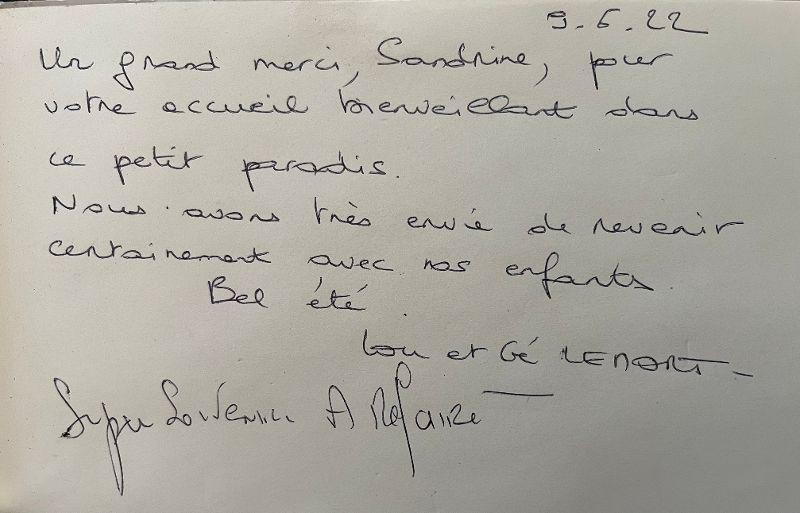 9.6.22
Un grand merci, Sandrine, pour
votre accueil bienveillant dans
ce petit paradis.
Nous avons très envie de revenir
certainement avec nos enfants.
Bel été.
Lou et Gé LENORT
Super Souvenir A Refaire